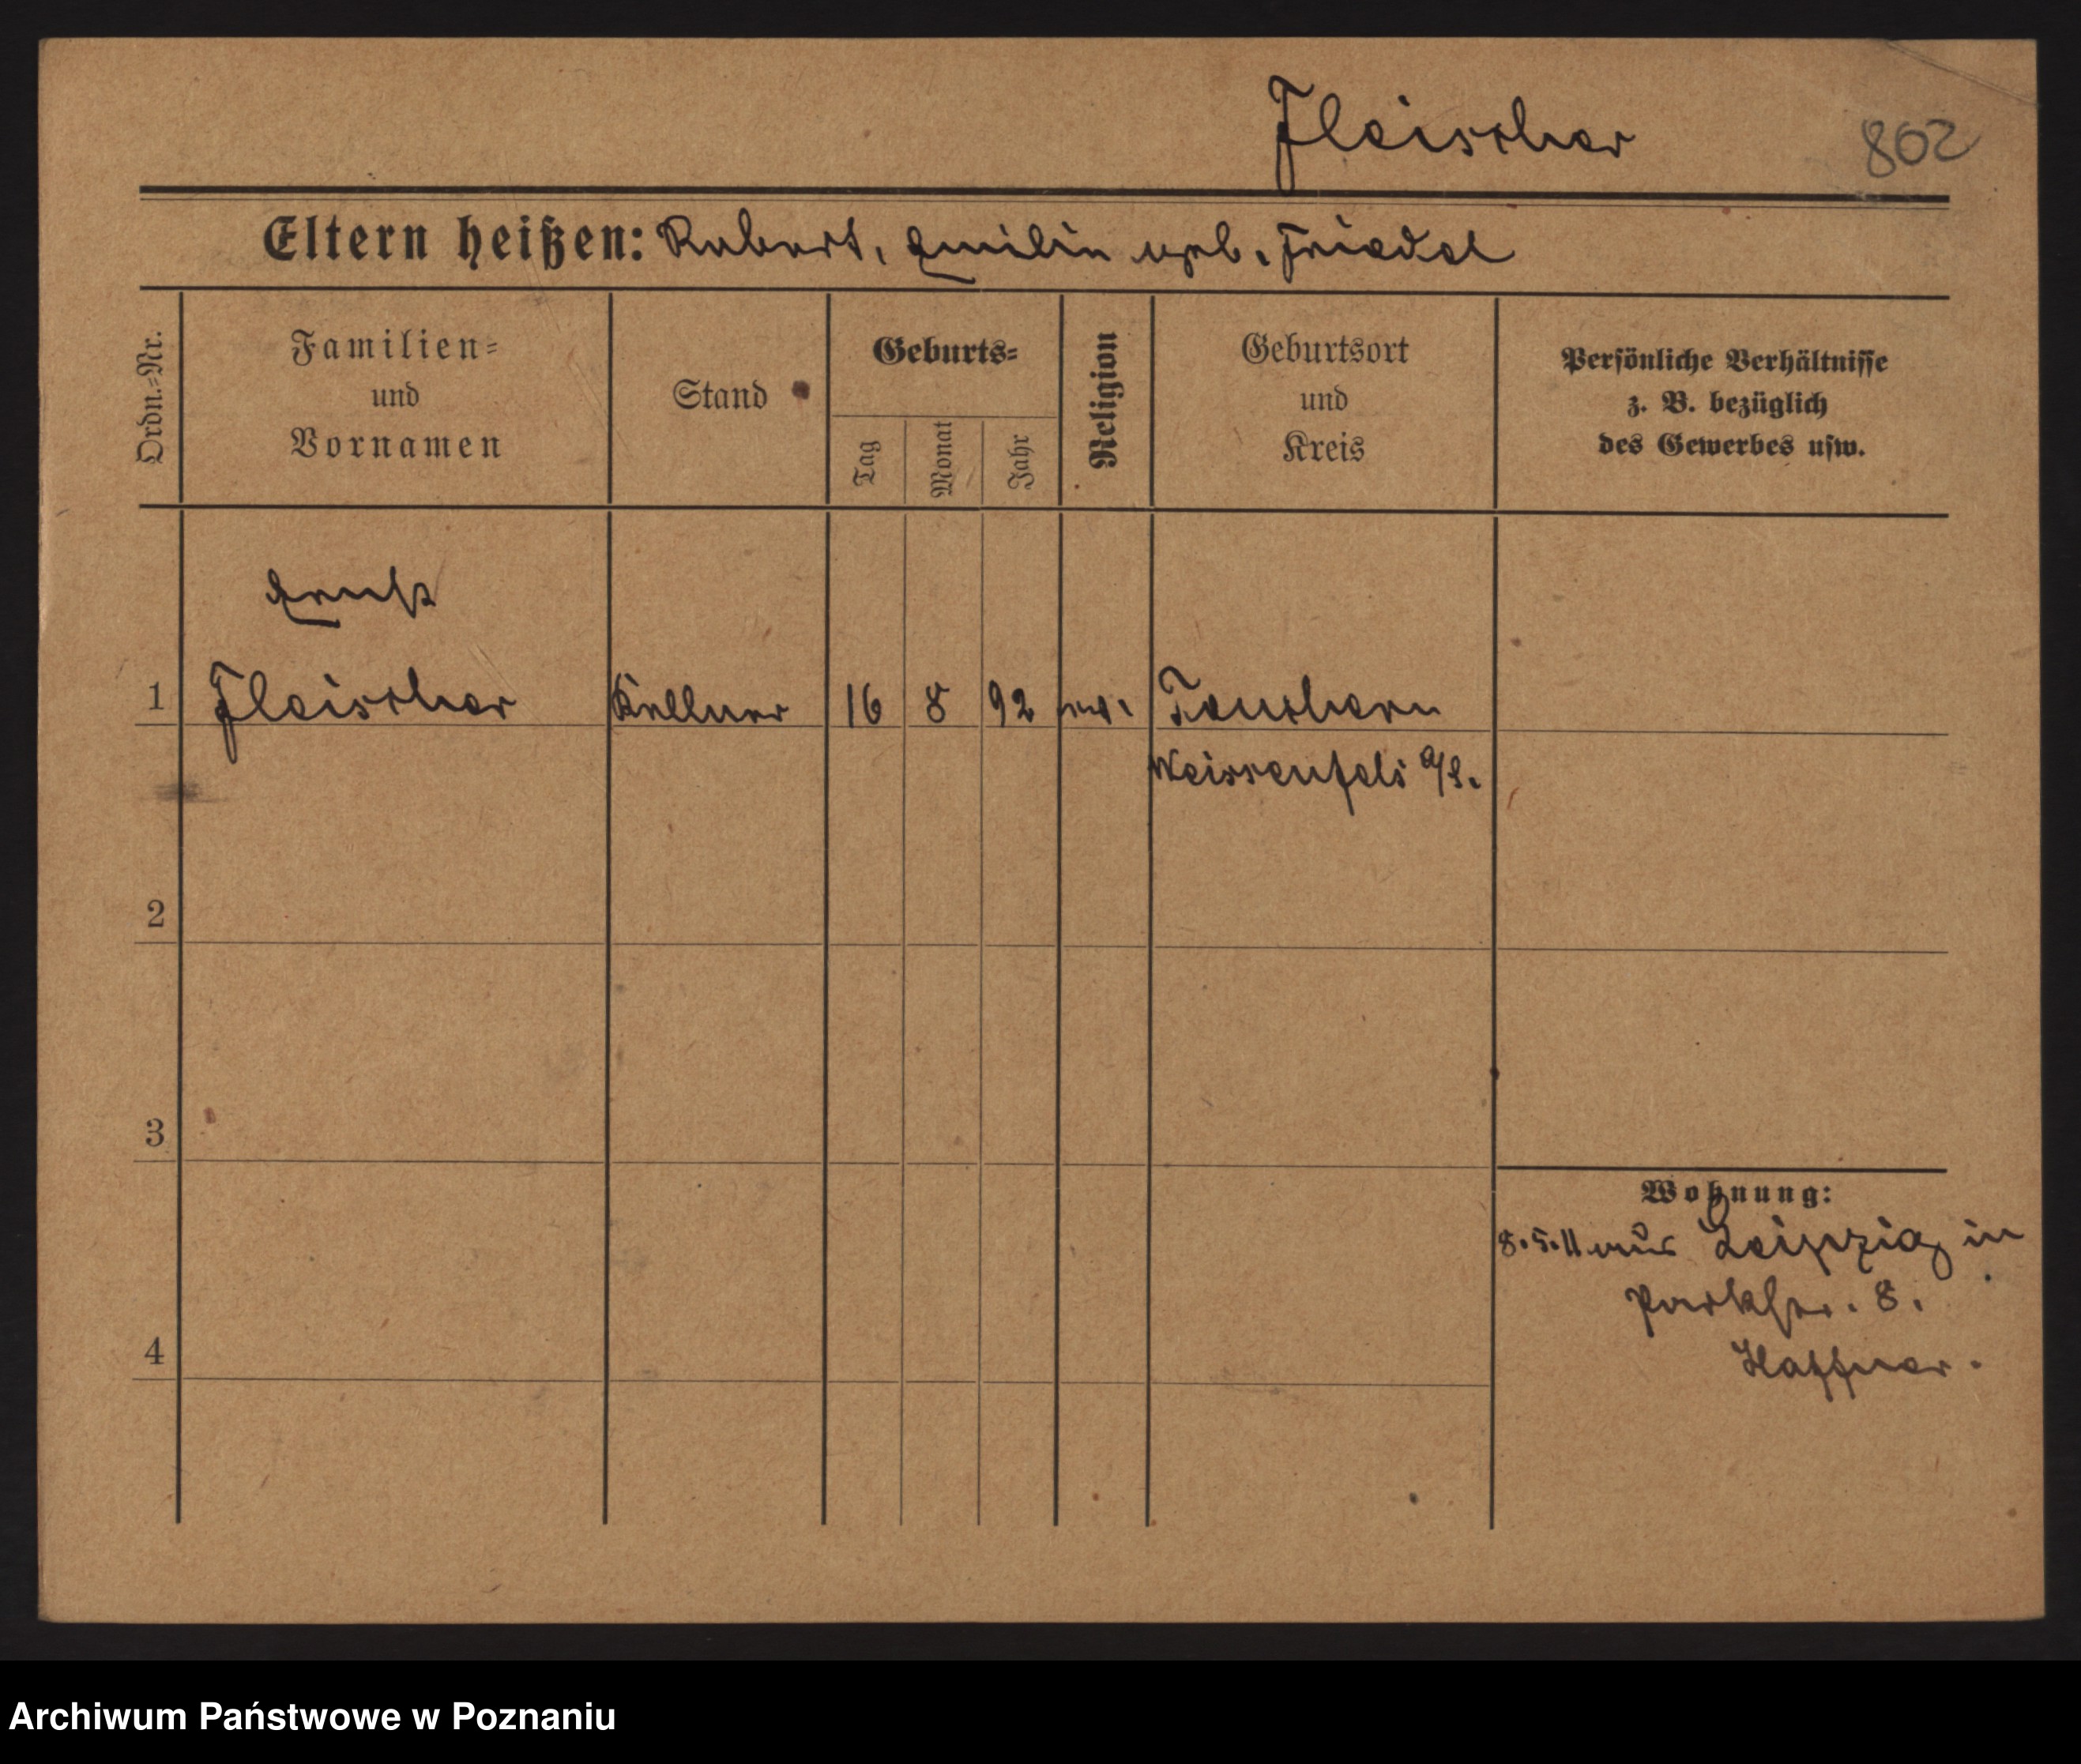 Fleischer 802
Eltern heißen: Robert, Emilie geb. Friedel
Ordn.=Nr.
Familien=
und
Vornamen
Stand
Geburts=
Tag
Monat
Jahr
Religion
Geburtsort
und
Kreis
Persönliche Verhältnisse
z. B. bezüglich
des Gewerbes usw.
Ernst
1 Fleischer Kellner 16 8 92 Teuchern
Weissenfels a/S.
2
3
Wohnung:
8.5.11 aus Leipzig in
Parkstr. 8.
Haffner.
4
Archiwum Państwowe w Poznaniu